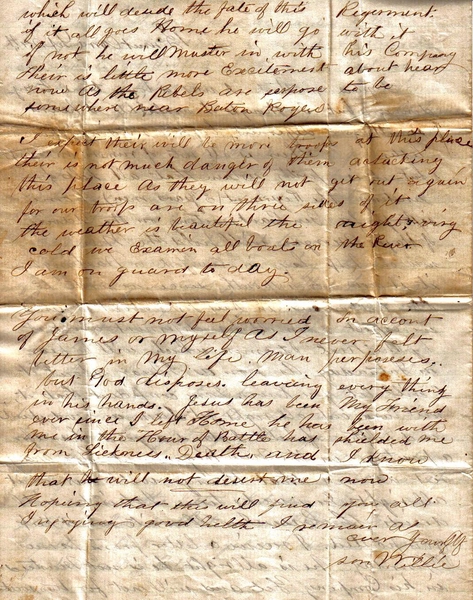 which will decide the fate of this Regerment.
if it all goes Home he will go with it
if not he will Muster in with his Company
their is little more Excitement about hear
now as the Rebels are sepose to be
somewhere near Baton Rogers
I expect their will be more troops at this place
their is not much danger of them attacting
this place As they will not get out again
for our troops are on three sides of it
the weather is beautiful the nights very
cold we Examen all boats on the River
I am on guard to day.
You must not feel worried on account
of James or myself As I never felt
better in My life. Man perposeses,
but God disposes. leaveing every thing
in his hands. Jesus has been My Friend
ever since I left Home he has been with
me in the Hour of Battle has shielded me
from Sickness, Death, and I know
that he will not desert me now
Hoping that this will find you all
Injoying good helth I remain as
ever your
son Willie